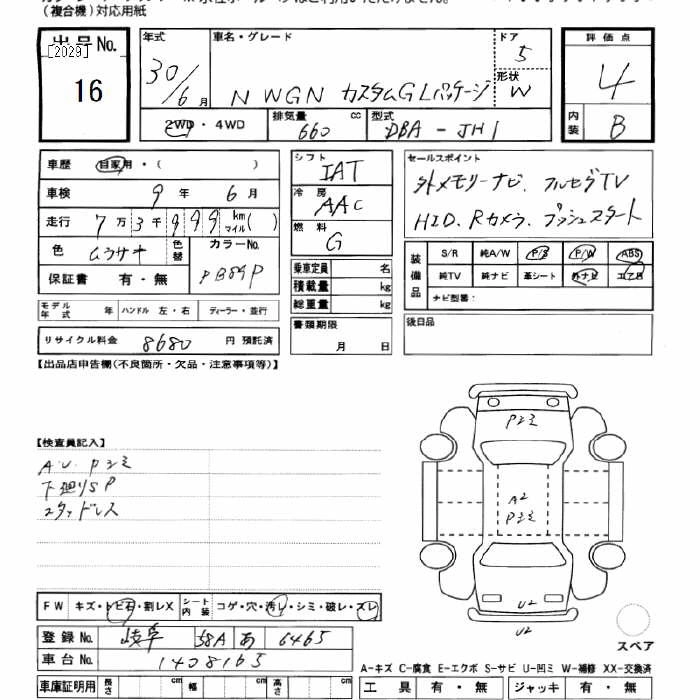 (複合機)対応用紙
出品No.
[2029]
16
年式
30/6月
車名・グレード
N WGN カスタムGLパッケージ
ドア
5
形状
W
2WD・4WD
排気量
660 cc
型式
DBA-JH1
評価点
4
内装
B
車歴 自家用・( )
車検 9年 6月
走行 7万3千999 km マイル( )
色 ムラサキ 色替 カラーNo.
PB89P
保証書 有・無
モデル年式 年 ハンドル 左・右 ディーラー・並行
リサイクル料金 8680 円 預託済
シフト
IAT
冷房
AAC
燃料
G
乗車定員 名
積載量 kg
総重量 kg
書類期限
月 日
セールスポイント
外メモリーナビ、フルセグTV
HID、Rカメラ、プッシュスタート
装備品
S/R 純A/W P/S P/W ABS
純TV 純ナビ 革シート 外ナビ エアB
ナビ型番:
後日品
【出品店申告欄(不良箇所・欠品・注意事項等)】
【検査員記入】
A・U、Pシミ
下廻りSP
スタッドレス
Pシミ
A2
Pシミ
U2
U2
スペア
FW キズ・トビ石・割レX シート内装 コゲ・穴・汚レ・シミ・破レ・スレ
登録No. 岐阜 58A あ 6465
車台No. 1408165
車庫証明用 長さ cm 幅 cm 高さ cm
A-キズ C-腐食 E-エクボ S-サビ U-凹ミ W-補修 XX-交換済
工具 有・無 ジャッキ 有・無